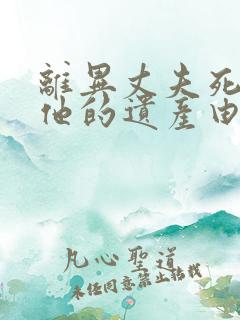 離異丈夫死
他的遺產由
凡心聖道
未經同意禁止轉載